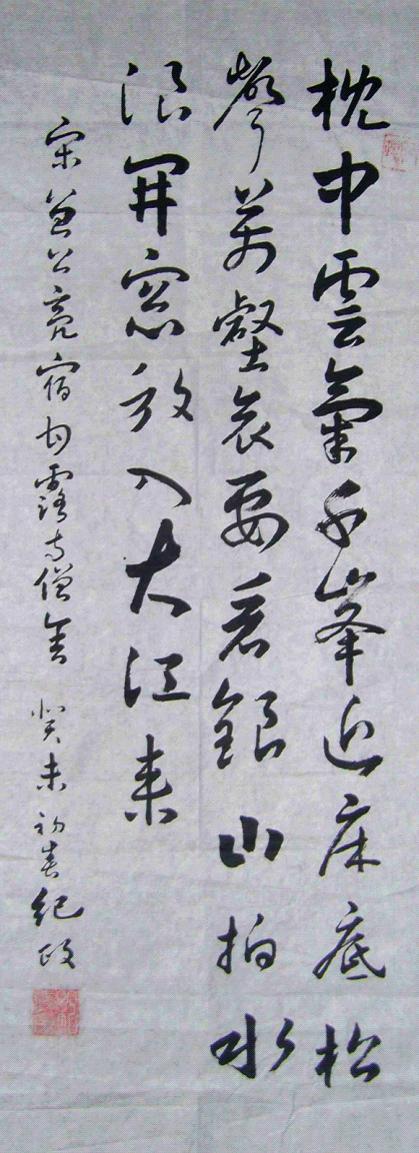 枕中雲氣千峯近床底松
聲萬壑哀要看銀山拍水
浪開窓放入大江来
宋曾公亮宿甘露寺僧舍 癸未初春紀政